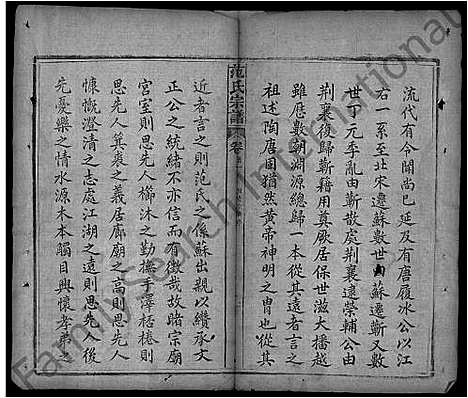 流代有令聞尚已延及有唐履冰公以江
右一系至北宋遷蘇數世由蘇遷蘄又數
世丁元季亂由蘄散處荆襄遠榮輔公由
荆襄復歸蘄籍用奠厥居保世滋大播越
雖應數朝淵源總歸一本從其遠者言之
祖述陶唐固猶然黄帝神明之胄也從其
范氏宗譜 卷
近者言之則范氏之係蘇出親以纘承文
正公之統緒不亦信而有徵哉故睹宗廟
宫室則思先人櫛沐之勤撫手澤桮棬則
思先人箕裘之義居廊廟之高則思先人
慷慨澄清之志處江湖之遠則思先人後
先憂樂之情水源木本觸目興懷孝弟之
FamilySearch International